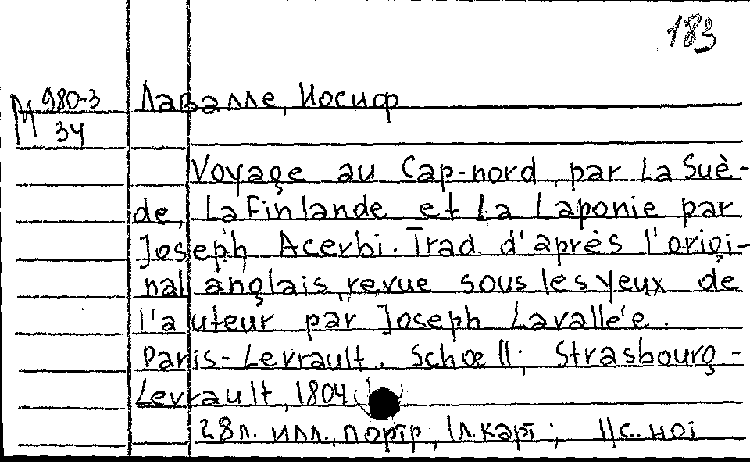 183
М 980-3
34
Лавалле, Иосиф
Voyage au Cap-nord, par La Suè-
de, La Finlande et La Laponie par
Joseph Acerbi. Trad d'après l'origi-
nal anglais, revue sous les yeux de
l'auteur par Joseph Lavallée.
Paris-Levrault. Schœll; Strasbourg-
Levrault, 1804.
28л. илл, портр, 1л.карт; 11с. нот